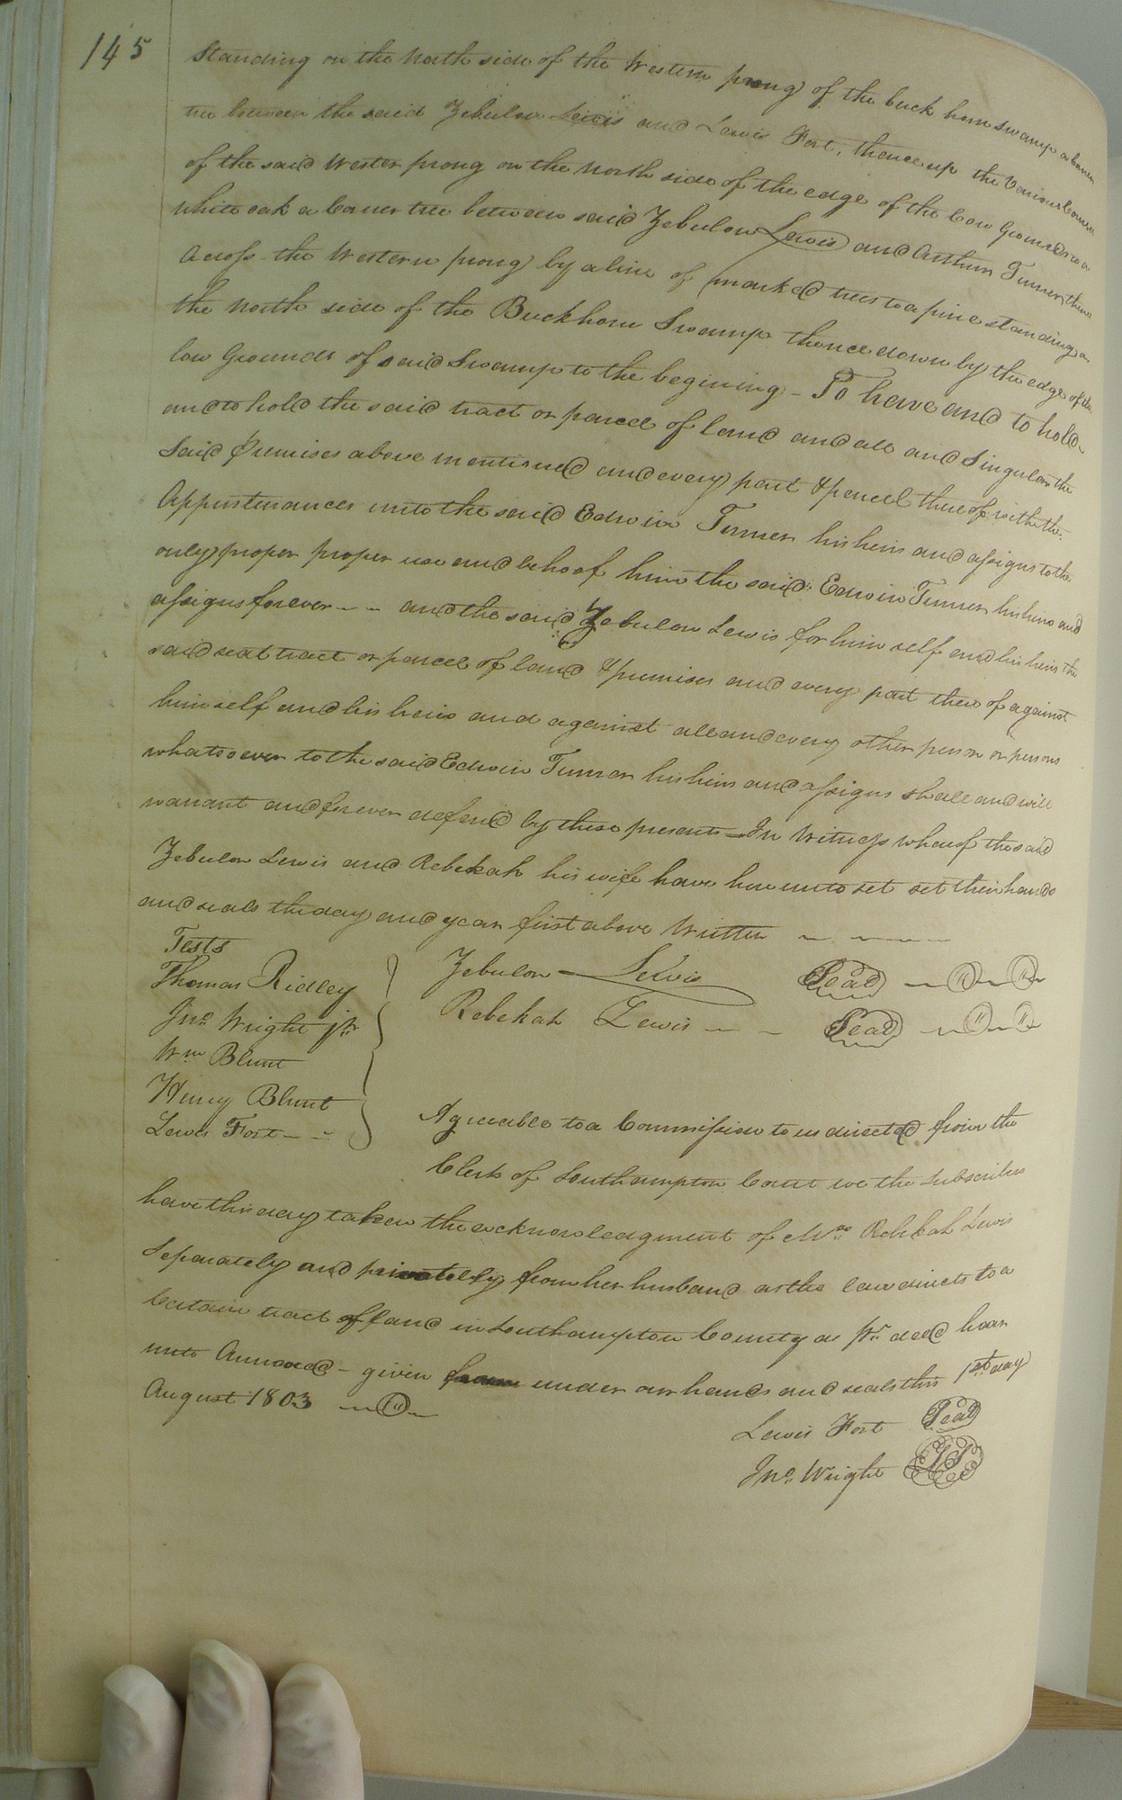 145
Standing on the North side of the Western prong of the buck horn swamp a corner
tree between the said Zebulon Lewis and Lewis Fort, thence up the Various Courses
of the said Wester prong on the North side of the edge of the Low Grounds to a
white oak a Corner tree between said Zebulon Lewis and Arthur Turner thence
Across the Western prong by a line of marked trees to a pine standing on
the North side of the Buckhorn Swamp thence down by the edge of the
low Grounds of said Swamp to the begining - To have and to hold
and to hold the said tract or parcel of land and all and Singular the
Said premises above mentioned and every part & parcel thereof with the
Appurtenances unto the said Edwin Turner his heirs and assigns to the
only proper proper use and behoof him the said Edwin Turner his heirs and
assigns forever - - and the said Zebulon Lewis for him self and his heirs the
said seat tract or parcel of land & premises and every part there of against
him self and his heirs and against all and every other person or persons
whatsoever to the said Edwin Turner his heirs and assigns shall and will
warrant and forever defend by these presents - In Witness whereof the said
Zebulon Lewis and Rebekah his wife have here unto set set their hands
and seals the day and year first above Written
Tests
Thomas Ridley
Zebulon Lewis Seal
Jno. Wright jr
Rebekah Lewis - - Seal
Wm Blunt
Henry Blunt
Lewis Fort - -
Agreeable to a Commission to us directed from the
Clerk of Southampton Court we the subscribers
have this day taken the acknowledgment of Mrs Rebkah Lewis
Seperately and privatelly from her husband as the law directs to a
Certain tract of land in Southampton County as pr deed hear
unto Annexed - given under our hands and seals this 1st day
August 1803
Lewis Fort Seal
Jno. Wright LS